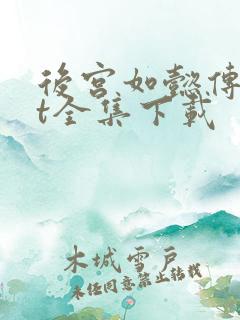 後宫如懿傳
t全集下載
木城雪戶
未经同意禁止转载